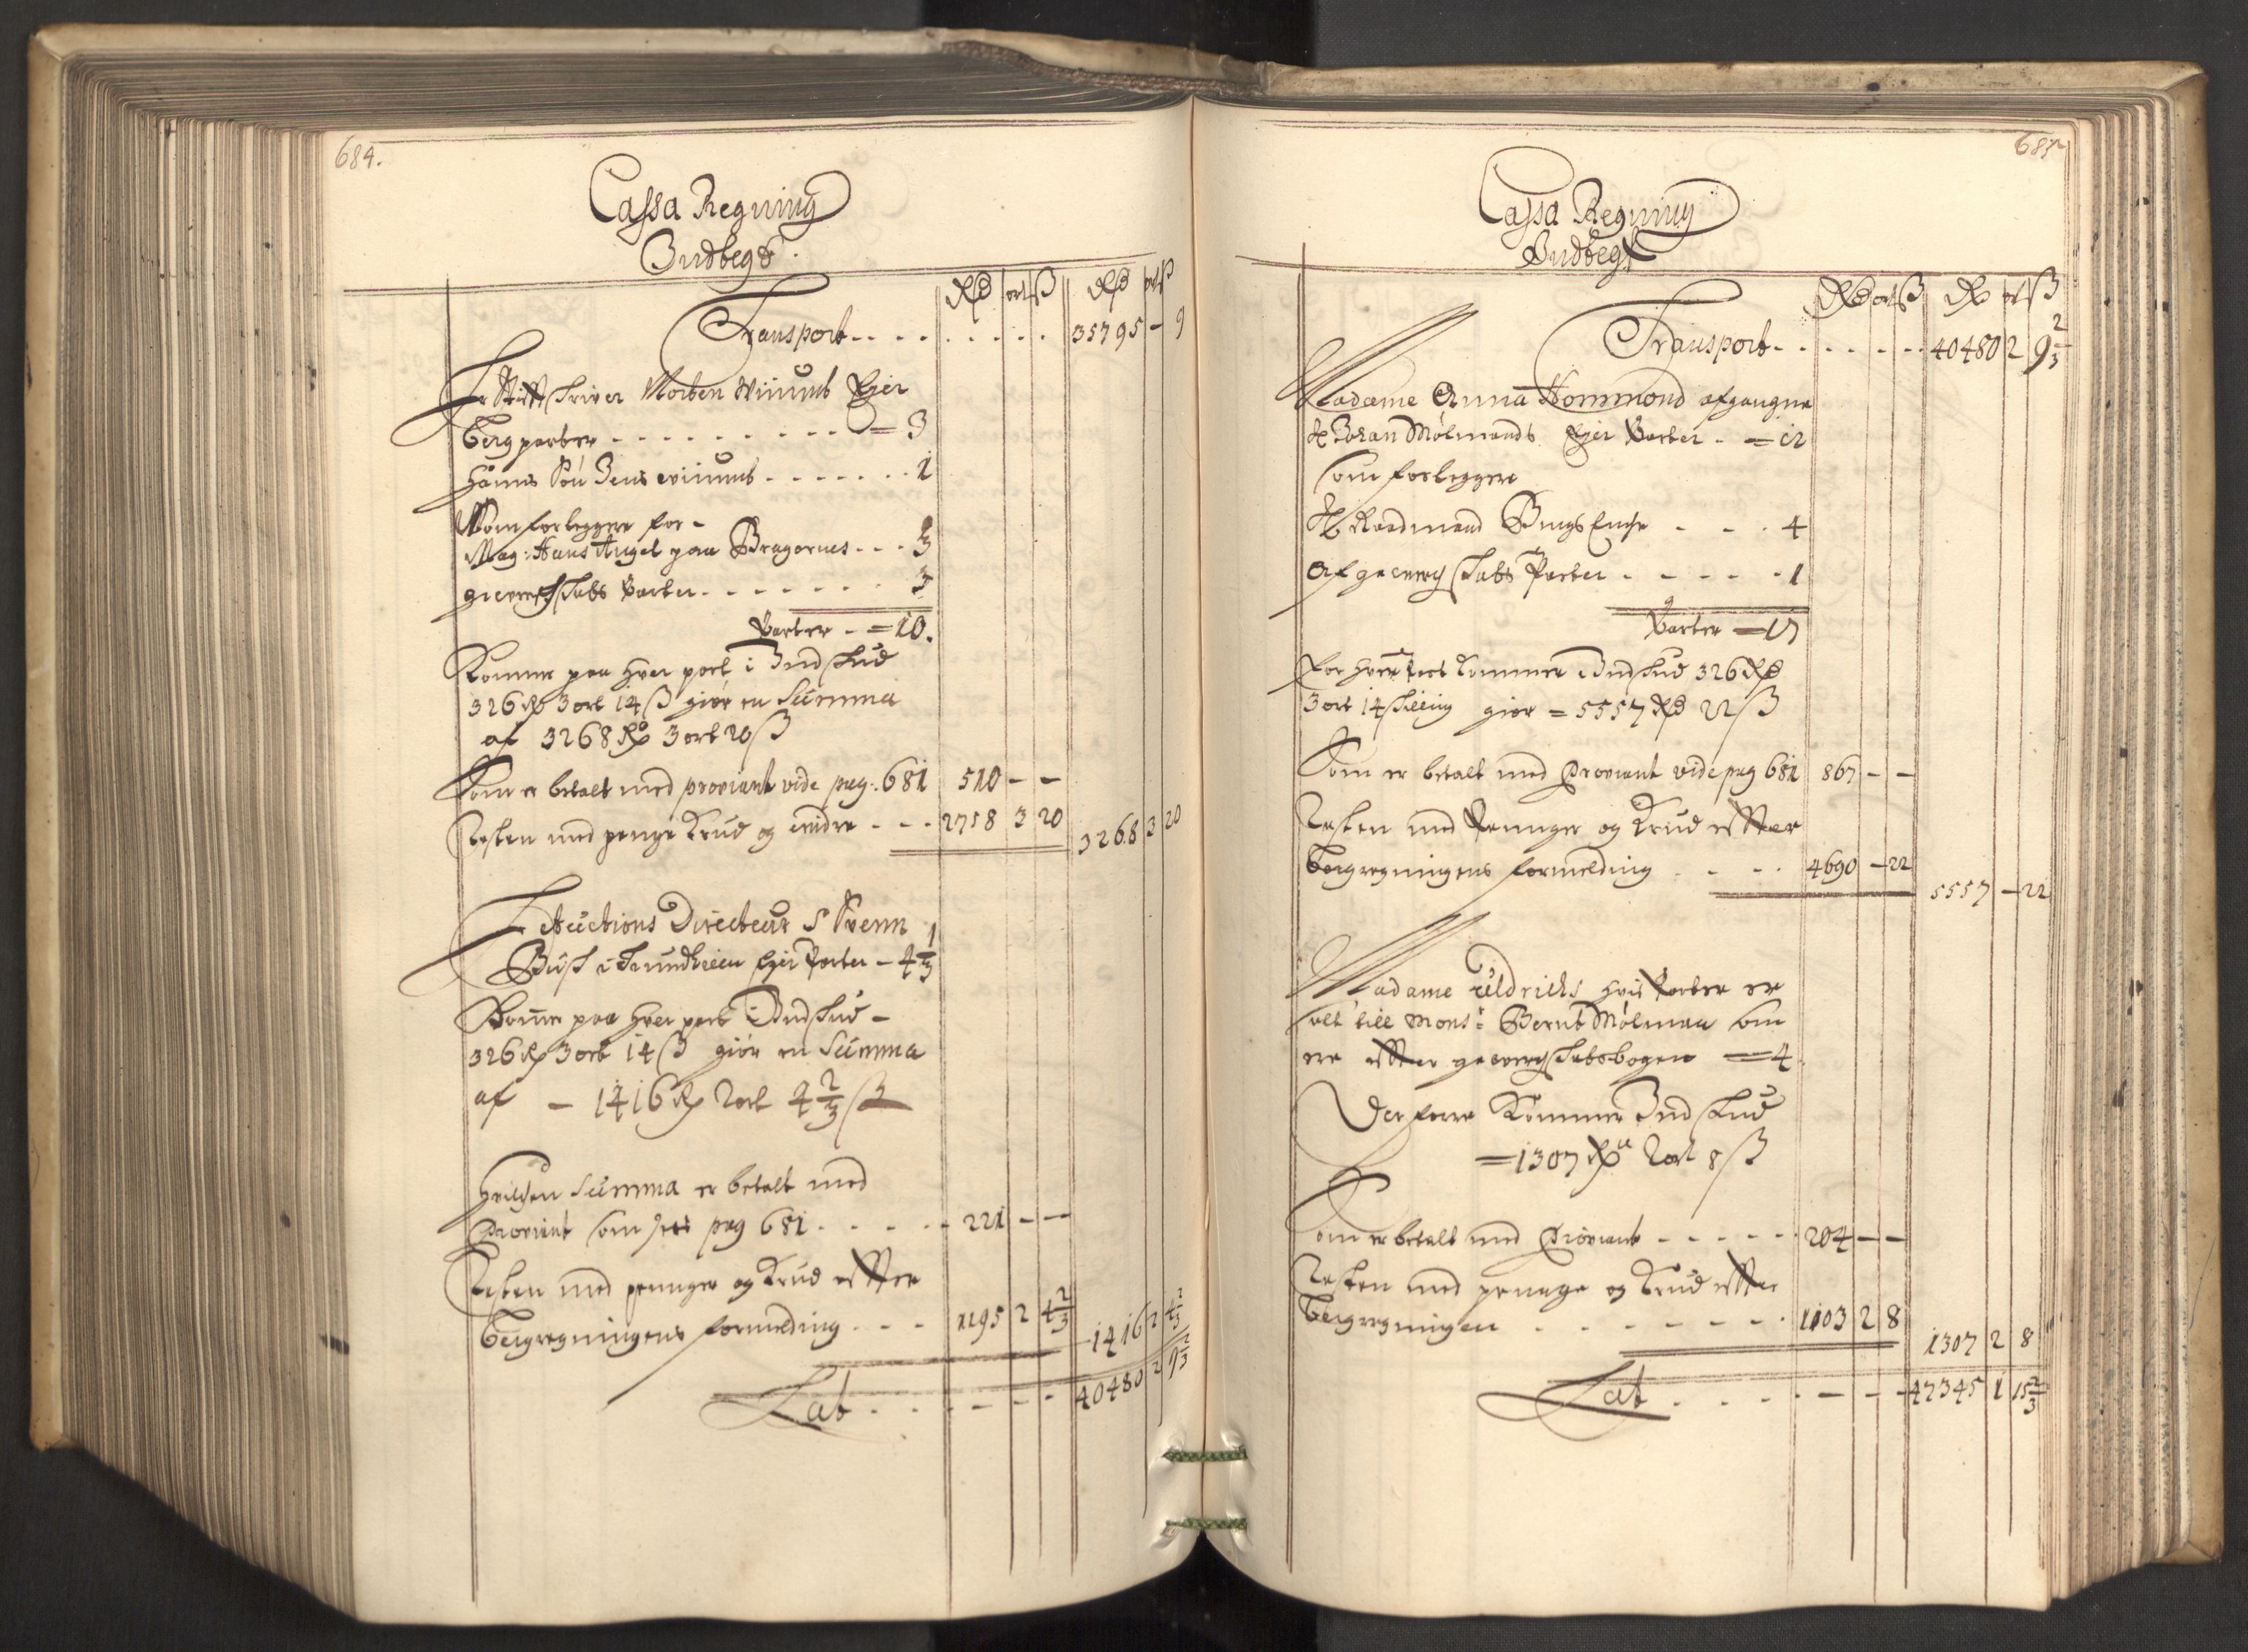 684.
Cassa Regning
Indtegt
Rd ort ß Rd ort ß
Transport - - - - - - - - 35795 - 9
Hr Stifftschriver Morten Winums Ejer
bergparter - - - - - - - - = 3
hanns Søn Jens Winums - - - - - - 1
Som forleggere for -
Mag: Hans Angel paa Bragernes - - - 3
gewerchskabs Parter - - - - - - 3
Parter - = 10.
Kommer paa hver part i Indskud
326 Rd 3 ort 14 ß giør en Summa
af 3268 Rd 3 ort 20 ß
Som er betalt med proviant vide pag: 681 510 - -
Resten med penge Krud og andre - - - 2758 3 20 3268 3 20
Hr Auctions Directeur Svenn
Busk i Trundhiem Ejer Parter - 4 1/3
Komme paa hver part i Indskud -
326 Rd 3 ort 14 ß giør en Summa
af - 1416 Rd 2 ort 4 2/3 ß
hvilchen Summa er betalt med
Proviant som sees pag 681 - - - - - 221 - -
Resten med penninger og Krud effter
bergregningens formelding - - - 1195 2 4 2/3 1416 2 4 2/3
Lat - - - - - - 40480 2 9 2/3
685
Cassa Regning
Indtegt
Rd ort ß Rd ort ß
Transport - - - - - - 40480 2 9 2/3
Madame Anna Hommond afgangne
H Johan Mølmands Ejer Parter - = 12
som forleggere
Hr Raadmand Bings Encke - - - 4
Af gewerchskabs Parter - - - - - 1
Parter = 17
For hver Part kommer Indskud 326 Rd
3 ort 14 skilling giør = 5557 Rd 22 ß
Som er betalt med Proviant vide pag 681 867 - -
Resten med Penninger og Krud effter
bergregningens formelding - - - 4690 - 22 5557 - 22
Madame Uldrichs hvis Parter er
solt till Monsr: Bernt Mølman som
ere effter gewerchskabsbogen = 4
Derforre Kommer Indskud
= 1307 Rd 2 ort 8 ß
Som er betalt med Proviant - - - - - 204 - -
Resten med penninge og Krud effter
bergregningen - - - - - - - 1103 2 8 1307 2 8
Lat - - - - - - - 47345 1 15 2/3